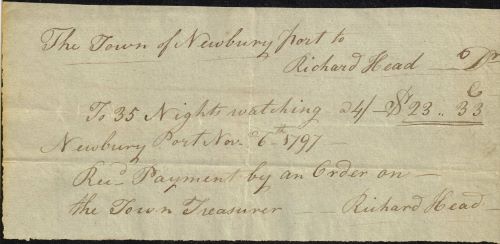 The Town of Newbury port to
Richard Head Dr
To 35 Nights watching 24/ — $23.. 33
Newbury Port Nov. 6th 1797 —
Recd Payment by an Order on —
the Town Treasurer — Richard Head —